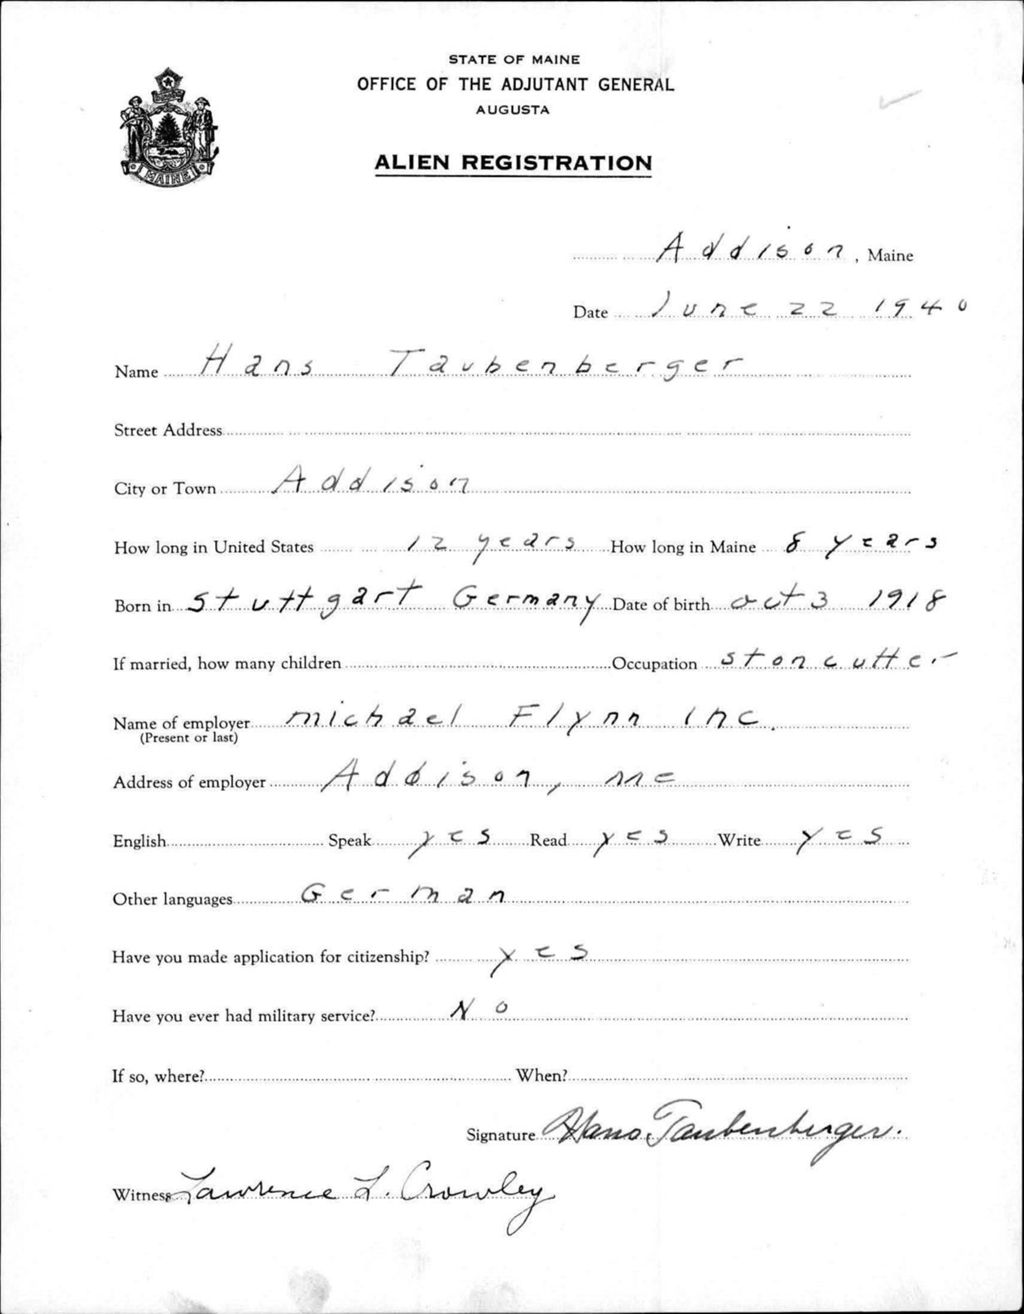 STATE OF MAINE
OFFICE OF THE ADJUTANT GENERAL
AUGUSTA
ALIEN REGISTRATION
MAINE
Addison, Maine
Date June 22 1940
Name Hans Taubenberger
Street Address
City or Town Addison
How long in United States 12 years How long in Maine 8 years
Born in Stuttgart Germany Date of birth Oct 3 1918
If married, how many children Occupation stoncutter
Name of employer michael Flynn Inc.
(Present or last)
Address of employer Addison, Me
English Speak yes Read yes Write yes
Other languages German
Have you made application for citizenship? yes
Have you ever had military service? No
If so, where? When?
Signature Hans Taubenberger.
Witness Lawrence L. Crowley